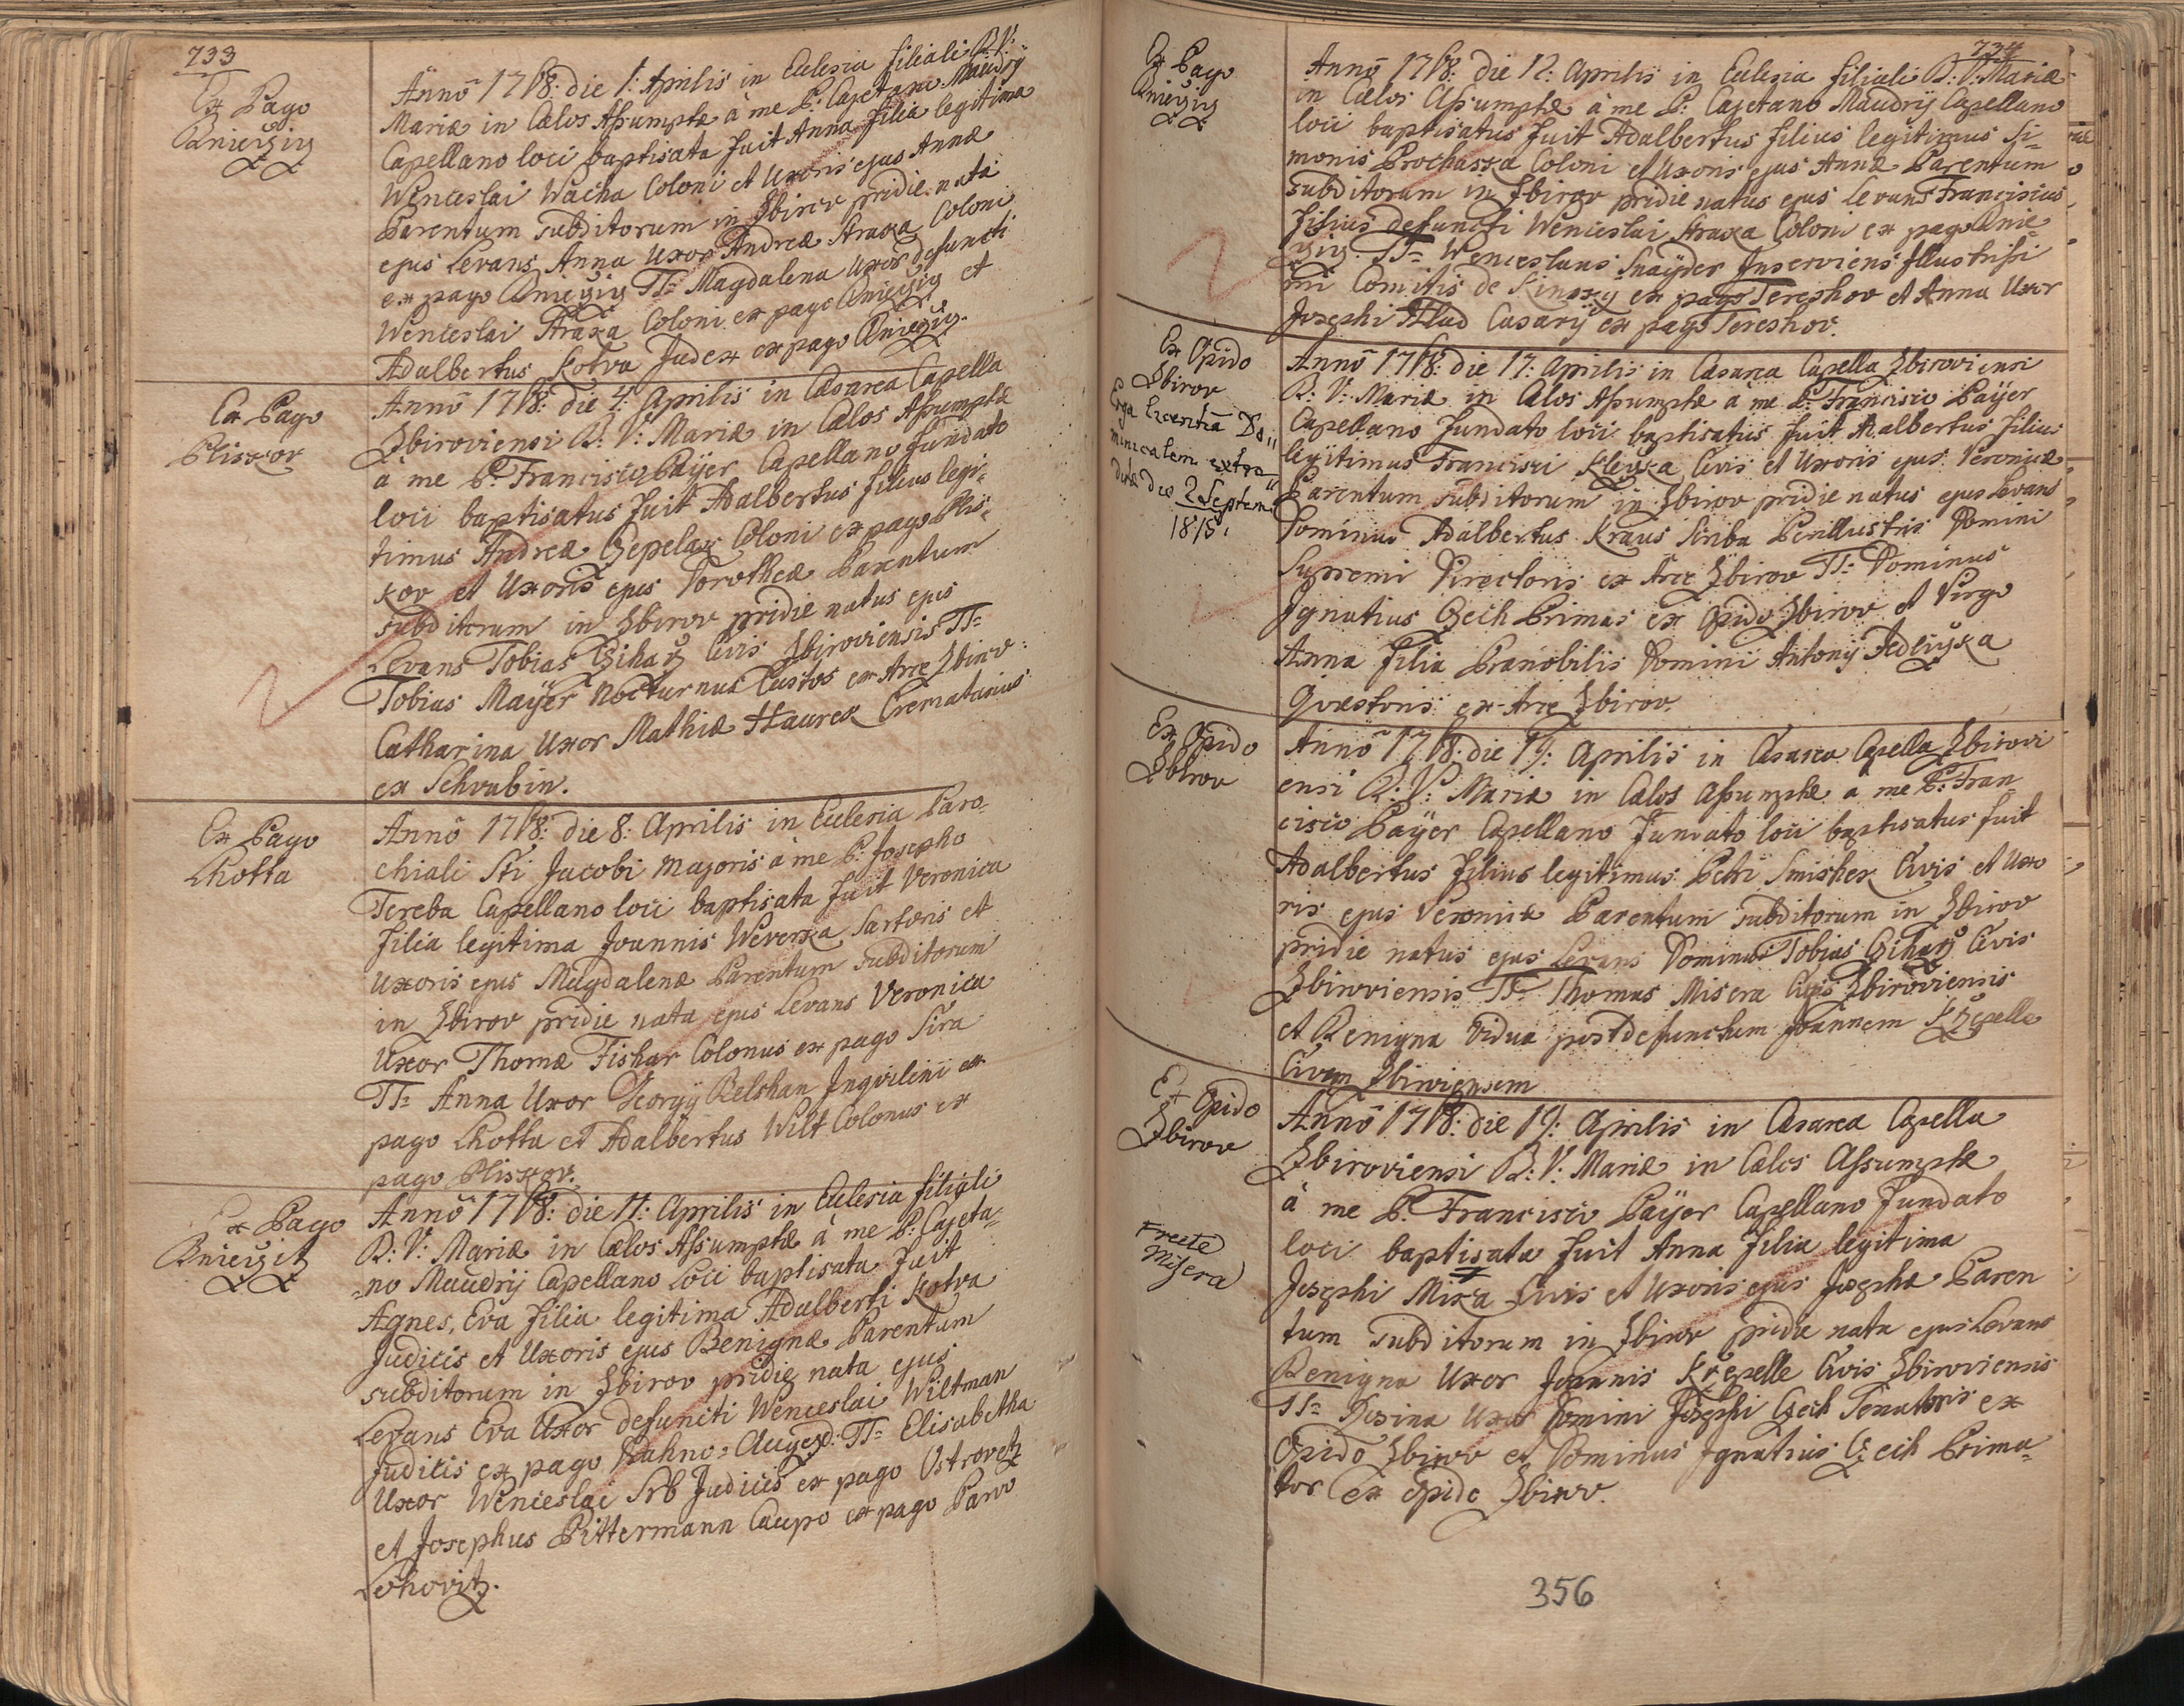 733
Ex Pago
Kniežig
Annō 1768: die 1: Aprilis in Eclesia filiali B: V:
Mariæ in Cælos Assumptæ à me P: Cajetano Maudrÿ
Capellano loci baptisata fuit Anna filia legitima
Wenceslai Wacha Coloni et Uxoris ejus Annæ
Parentum subditorum in Zbirov pridie nata
ejus Levans Anna Uxor Andreæ Straka Coloni
ex pago Kniežig TT= Magdalena Uxor defuncti
Wenceslai Straka Coloni ex pago Kniežig et
Adalbertus Kotva Judex ex pago Kniežig.
Ex Pago
Pliskov
Annō 1768: die 4: Aprilis in Cæsarea Capella
Zbiroviensi B: V: Mariæ in Cælos Assumptæ
à me P: Francisco Paÿer Capellano fundato
loci baptisatus fuit Adalbertus filius legi=
timus Andreæ Czepelak Coloni ex pago Plis=
kov et Uxoris ejus Dorotheæ Parentum
subditorum in Zbirov pridie natus ejus
Levans Tobias Cziharz Civis Zbiroviensis TT=
Tobias Maÿer Nocturnus Custos ex Arce Zbirov:
Catharina Uxor Mathiæ Haurek Crematarius
ex Schvabin.
Ex Pago
Lhotta
Annō 1768: die 8: Aprilis in Eclesia Paro=
chiali Sti Jacobi Majoris à me P: Josepho
Tereba Capellano loci baptisata fuit Veronica
filia legitima Joannis Weverka Sartoris et
Uxoris ejus Magdalenæ Parentum subditorum
in Zbirov pridie nata ejus Levans Veronica
Uxor Thomæ Fishar Colonus ex pago Sira
TT= Anna Uxor Georgÿ Belohan Inqvilini ex
pago Lhotta et Adalbertus Wilt Colonus ex
pago Pliskov.
Ex Pago
Kniežit
Annō 1768: die 11: Aprilis in Eclesia filiali
B: V: Mariæ in Cælos Assumptæ à me P: Cajeta=
=no Maudrÿ Capellano Loci baptisata fuit
Agnes, Eva filia legitima Adalberti Kotva
Judicis et Uxoris ejus Benignæ Parentum
subditorum in Zbirov pridie nata ejus
Levans Eva Uxor defuncti Wenceslai Wiltman
Judicis ex pago Kahno=Augezd: TT= Elisabetha
Uxor Wenceslai Srb Judicis ex pago Ostrovetz
et Josephus Pittermann Caupo ex pago Parvo
Lohovitz.
734
Ex Pago
Kniežig
Annō 1768: die 12: Aprilis in Eclesia filiali B: V: Mariæ
in Cælos Assumptæ à me P: Cajetano Maudrÿ Capellano
loci baptisatus fuit Adalbertus filius legitimus Si=
monis Prochaska Coloni et Uxoris ejus Annæ Parentum
subditorum in Zbirov pridie natus ejus Levans Franciscus
filius defuncti Wenceslai Straka Coloni ex pago Knie=
žig TT= Wenceslaus Snaÿder Inserviens Illustrissi
mi Comitis de Kinsky ex pago Tereshov et Anna Uxor
Josephi Hlad Casarÿ ex pago Tereshov.
Ex Opido
Zbirov
Erga licentiā Do"
minicalem extra"
ditā die 2 Septem"
1815.
Annō 1768: die 17: Aprilis in Cæsarea Capella Zbiroviensi
B: V: Mariæ in Cælos Assumptæ a me P: Francisco Paÿer
Capellano fundato loci baptisatus fuit Adalbertus filius
legitimus Francisci Klejka Civis et Uxoris ejus Veronicæ
Parentum subditorum in Zbirov pridie natus ejus Levans
Dominus Adalbertus Kraus Scriba Perillustris Domini
Supremi Directoris ex Arce Zbirov TT= Dominus
Ignatius Czech Primas ex Opido Zbirov et Virgo
Anna filia Prænobilis Domini Antonÿ Hdlužka
Qvæstoris ex Arce Zbirov.
Ex Opido
Zbirov
Annō 1768: die 19: Aprilis in Cæsarea Capella Zbirovi
ensi B: V: Mariæ in Cælos Assumptæ a me P: Fran
cisco Paÿer Capellano fundato loci baptisatus fuit
Adalbertus filius legitimus Petri Smishek Civis et Uxo
ris ejus Veronicæ Parentum subditorum in Zbirov
pridie natus ejus Levans Dominus Tobias Cziharz Civis
Zbiroviensis TT= Thomas Misera Civis Zbiroviensis
et Benigna Vidua post defunctum Joannem Kržepelle
Civem Zbiroviensem
Ex Opido
Zbirov
Annō 1768: die 19: Aprilis in Cæsarea Capella
Zbiroviensi B: V: Mariæ in Cælos Assumptæ
à me P: Francisco Paÿer Capellano fundato
loci baptisata fuit Anna filia legitima
Josephi Mixa Civis et Uxoris ejus Josephæ Paren
tum subditorum in Zbirov pridie nata ejus Levans
Benigna Uxor Joannis Kržepelle Civis Zbiroviensis
TT= Rosina Uxor Domini Josephi Czech Senatoris ex
Opido Zbirov et Dominus Ignatius Czech Prima=
tor ex Opido Zbirov.
Freete
Misera
356